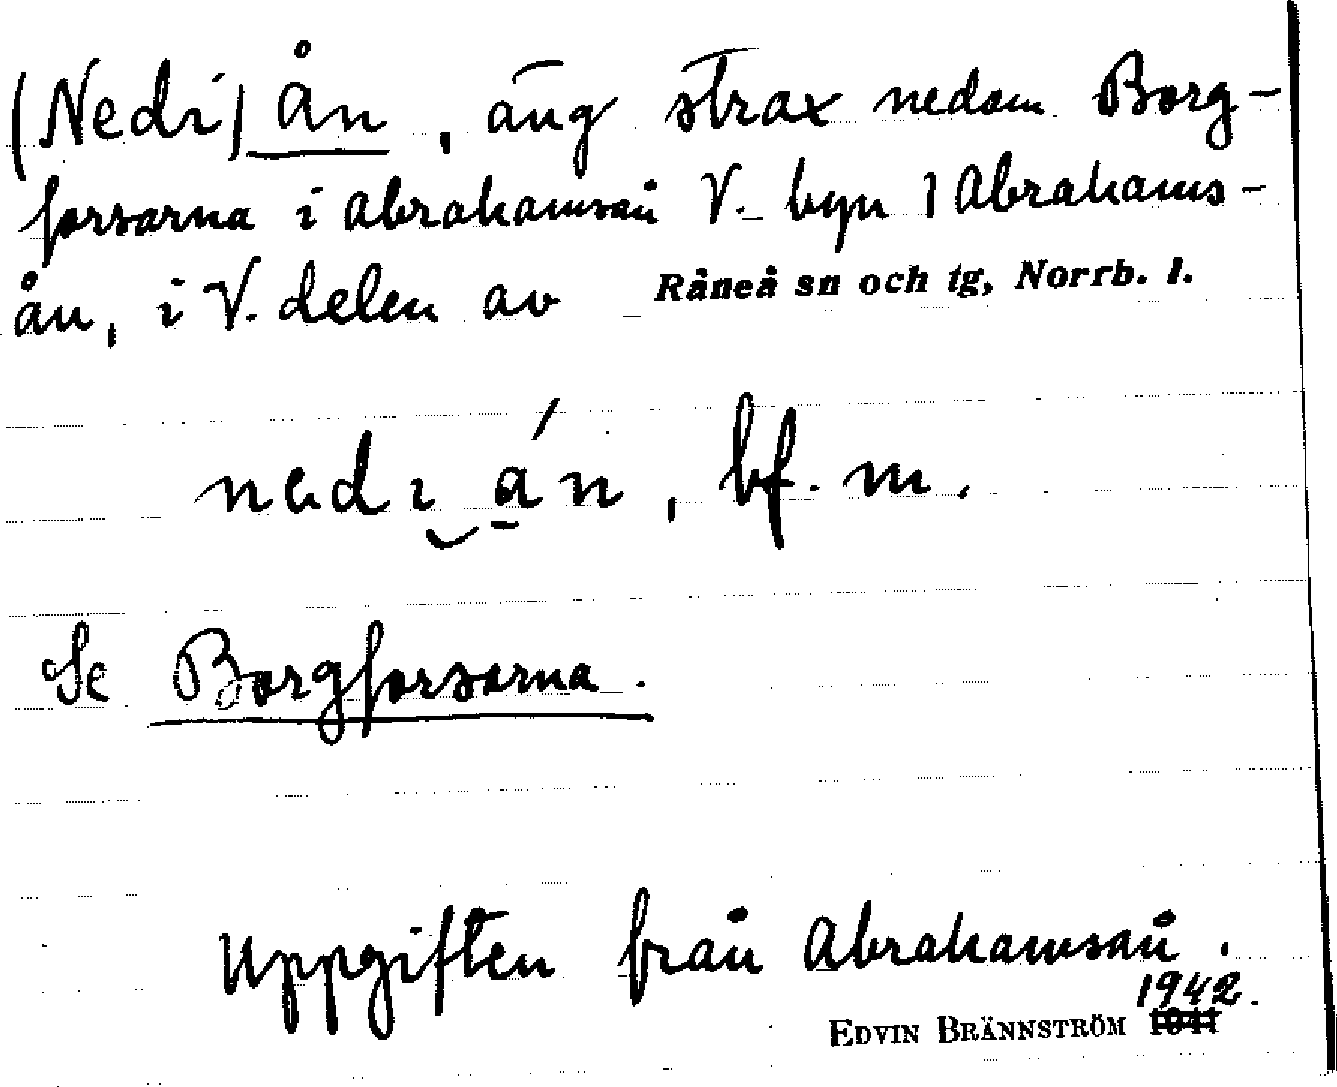 (Nedi) Ån, äng strax nedom Borg-
forsarna i Abrahamsån V. byn 1 Abrahams-
ån, i V. delen av Råneå sn och tg, Norrb. l.
nedi‿á̱n, bf. m.
Se Borgforsarna.
Uppgiften från Abrahamsån.
1942.
EDVIN BRÄNNSTRÖM 1941